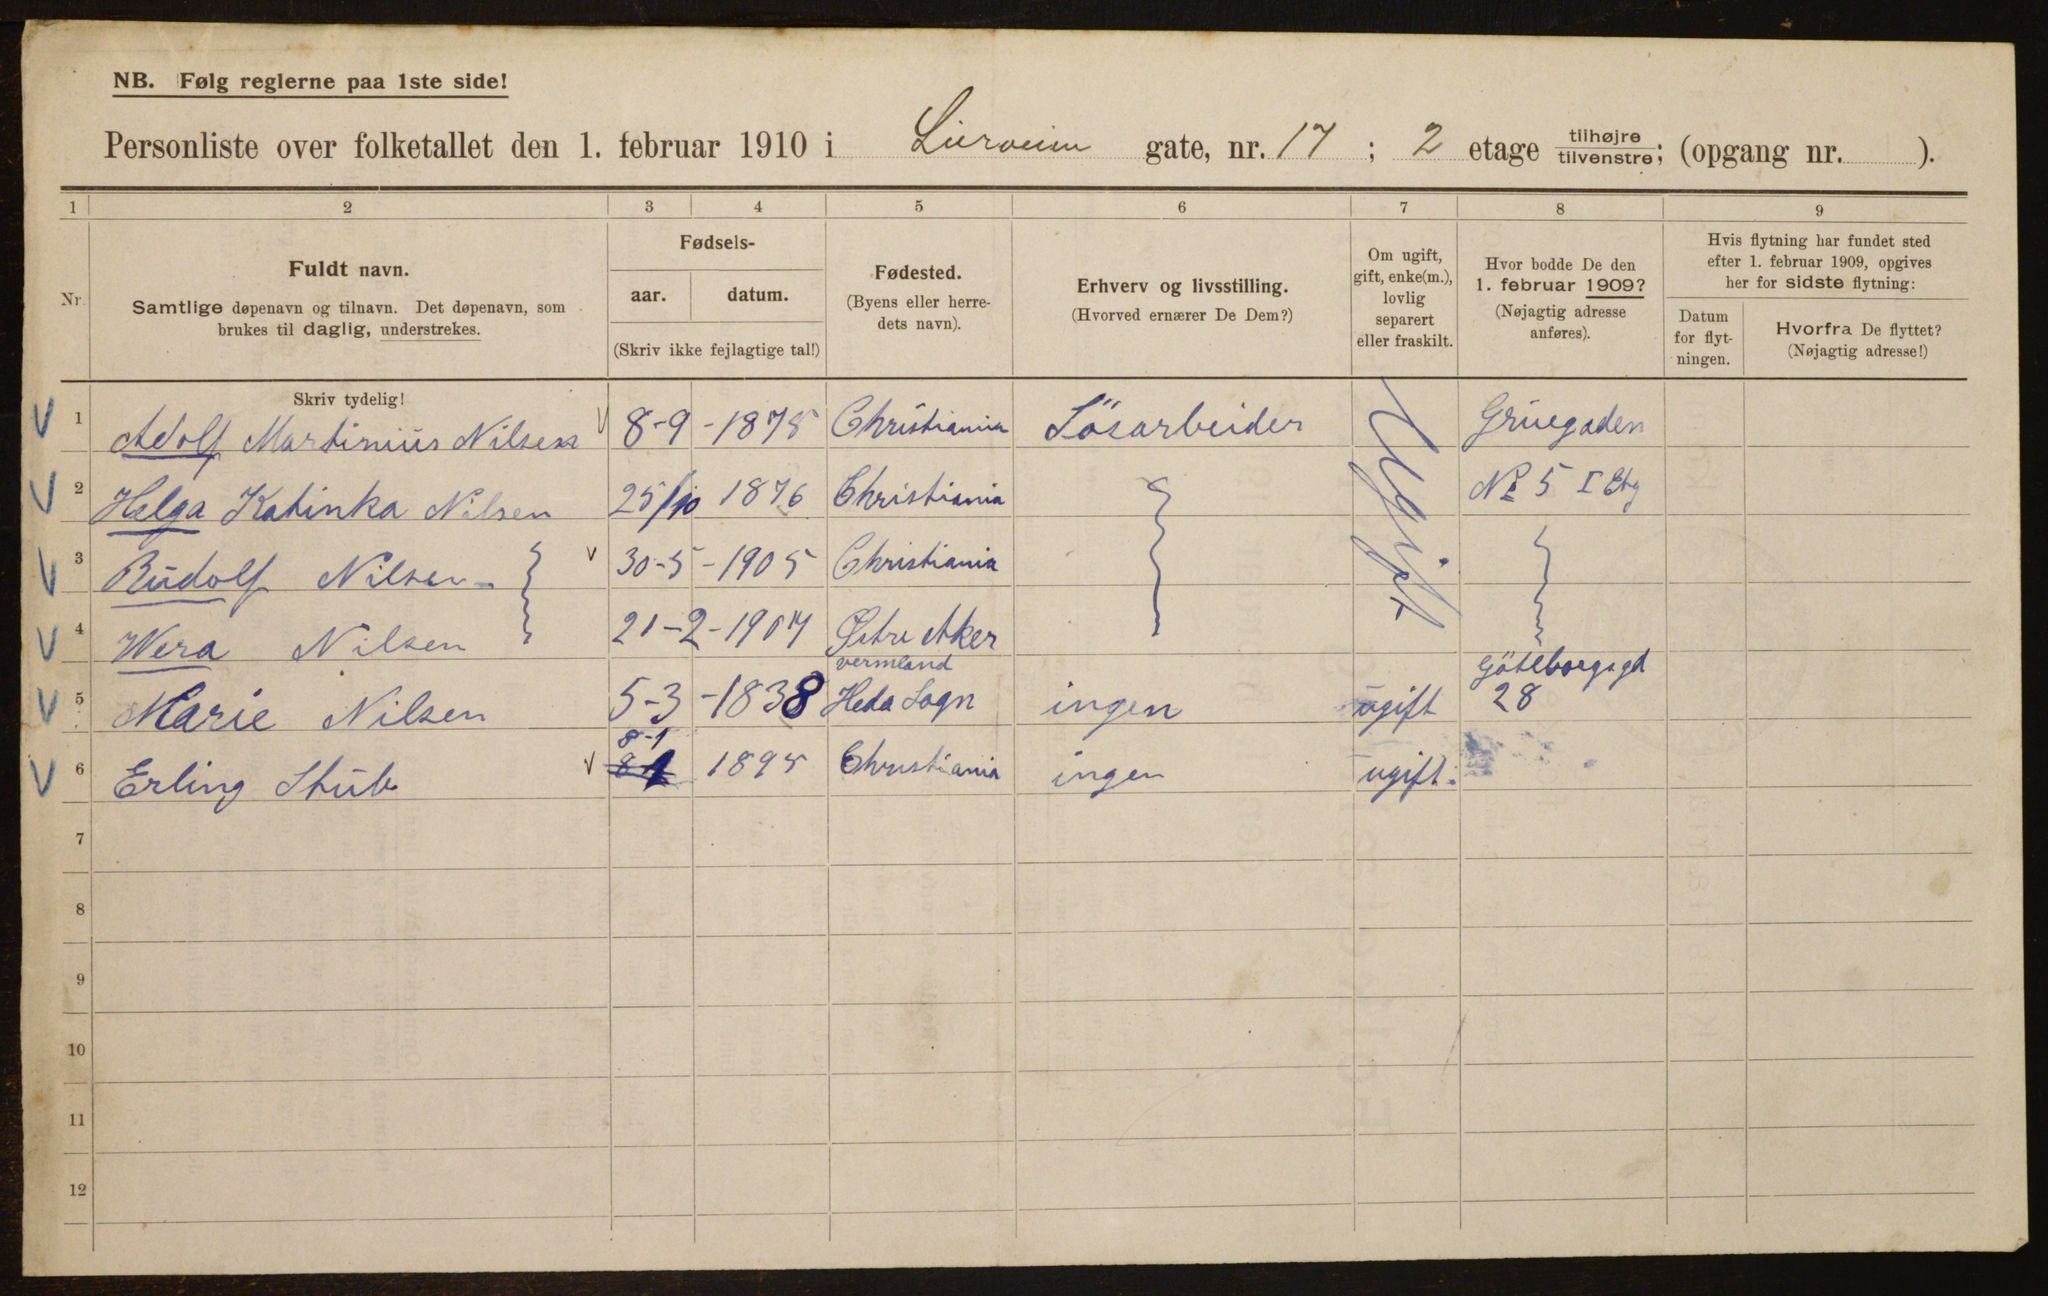 NB. Følg reglerne paa 1ste side!
Personliste over folketallet den 1. februar 1910 i Lierveien gate, nr. 17 ; 2 etage tilhøjre/tilvenstre; (opgang nr. ).
1 2 3 4 5 6 7 8 9
Nr.
Fuldt navn.
Samtlige døpenavn og tilnavn. Det døpenavn, som
brukes til daglig, understrekes.
Fødsels-
aar. datum.
(Skriv ikke fejlagtige tal!)
Fødested.
(Byens eller herre-
dets navn).
Erhverv og livsstilling.
(Hvorved ernærer De Dem?)
Om ugift,
gift, enke(m.),
lovlig
separert
eller fraskilt.
Hvor bodde De den
1. februar 1909?
(Nøjagtig adresse
anføres).
Hvis flytning har fundet sted
efter 1. februar 1909, opgives
her for sidste flytning:
Datum
for flyt-
ningen.
Hvorfra De flyttet?
(Nøjagtig adresse!)
Skriv tydelig!
1 Adolf Martinius Nilsen 8-9 -1875 Christiania Lösarbeider Ugift Grüegaden
2 Helga Katinka Nilsen 25/10 1876 Christiania No 5 I Etg
3 Rudolf Nilsen 30-5 -1905 Christiania
4 Wera Nilsen 21-2-1907 Østre Aker
vermland Göteborgsgd
5 Marie Nilsen 5-3 -1838 Heda Sogn ingen ugift 28
8-1
6 Erling Stub 8 1 1895 Christiania ingen ugift.
7
8
9
10
11
12